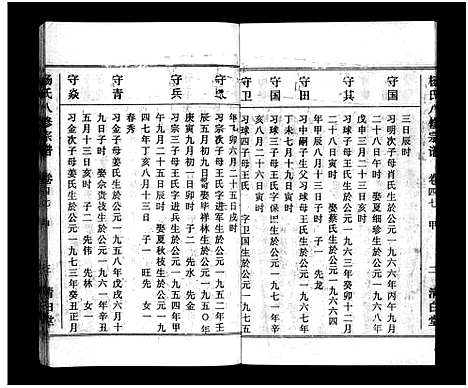 杨氏八修宗谱 卷四七 甲 清白堂
三日辰时
守国 习明次子母肖氏生於公元一九六六年丙午九月
二十八日午时 娶夏细珍生於公元一九六八年
戊申三月二十三日亥时
守其 习球三子母王氏生於公元一九六三年癸卯十二月
二十八日寅时 娶蔡氏生於公元一九六四
年甲辰八月十三日子时 子一 先龙
守田 习中嗣子生父习球母王氏生於公元一九六七年
丁未七月十九日戌时
守国 习球三子母王氏字保
亥八月二十六日亥时
守卫 习球四子母王氏 字卫国生於公元一九七五
年 六月二十五日戌时
习宗次子母王氏字进军生於公元一九五二年壬
辰五月初九日 时 娶毕祥林生於公元一九五〇年
庚寅九月初一日卯时 子二 先水 先金
守兵 习宗三子母王氏字兵生於公元一九五四年甲
午九月二十五日辰时 娶夏秋枝生於公元一九
四七年丁亥八月十三日 子一 旺先 女一
春秀
守青 习金子母姜氏生於公元一九五八年戊戌六月十
九日子时 娶余贵枝生於公元一九六一年辛丑
五月十三日亥时 子二 先伟 先林 女一
守焱 习金次子母姜氏生於公元一九七三年癸丑正月
杨氏八修宗谱 卷四七 清白堂